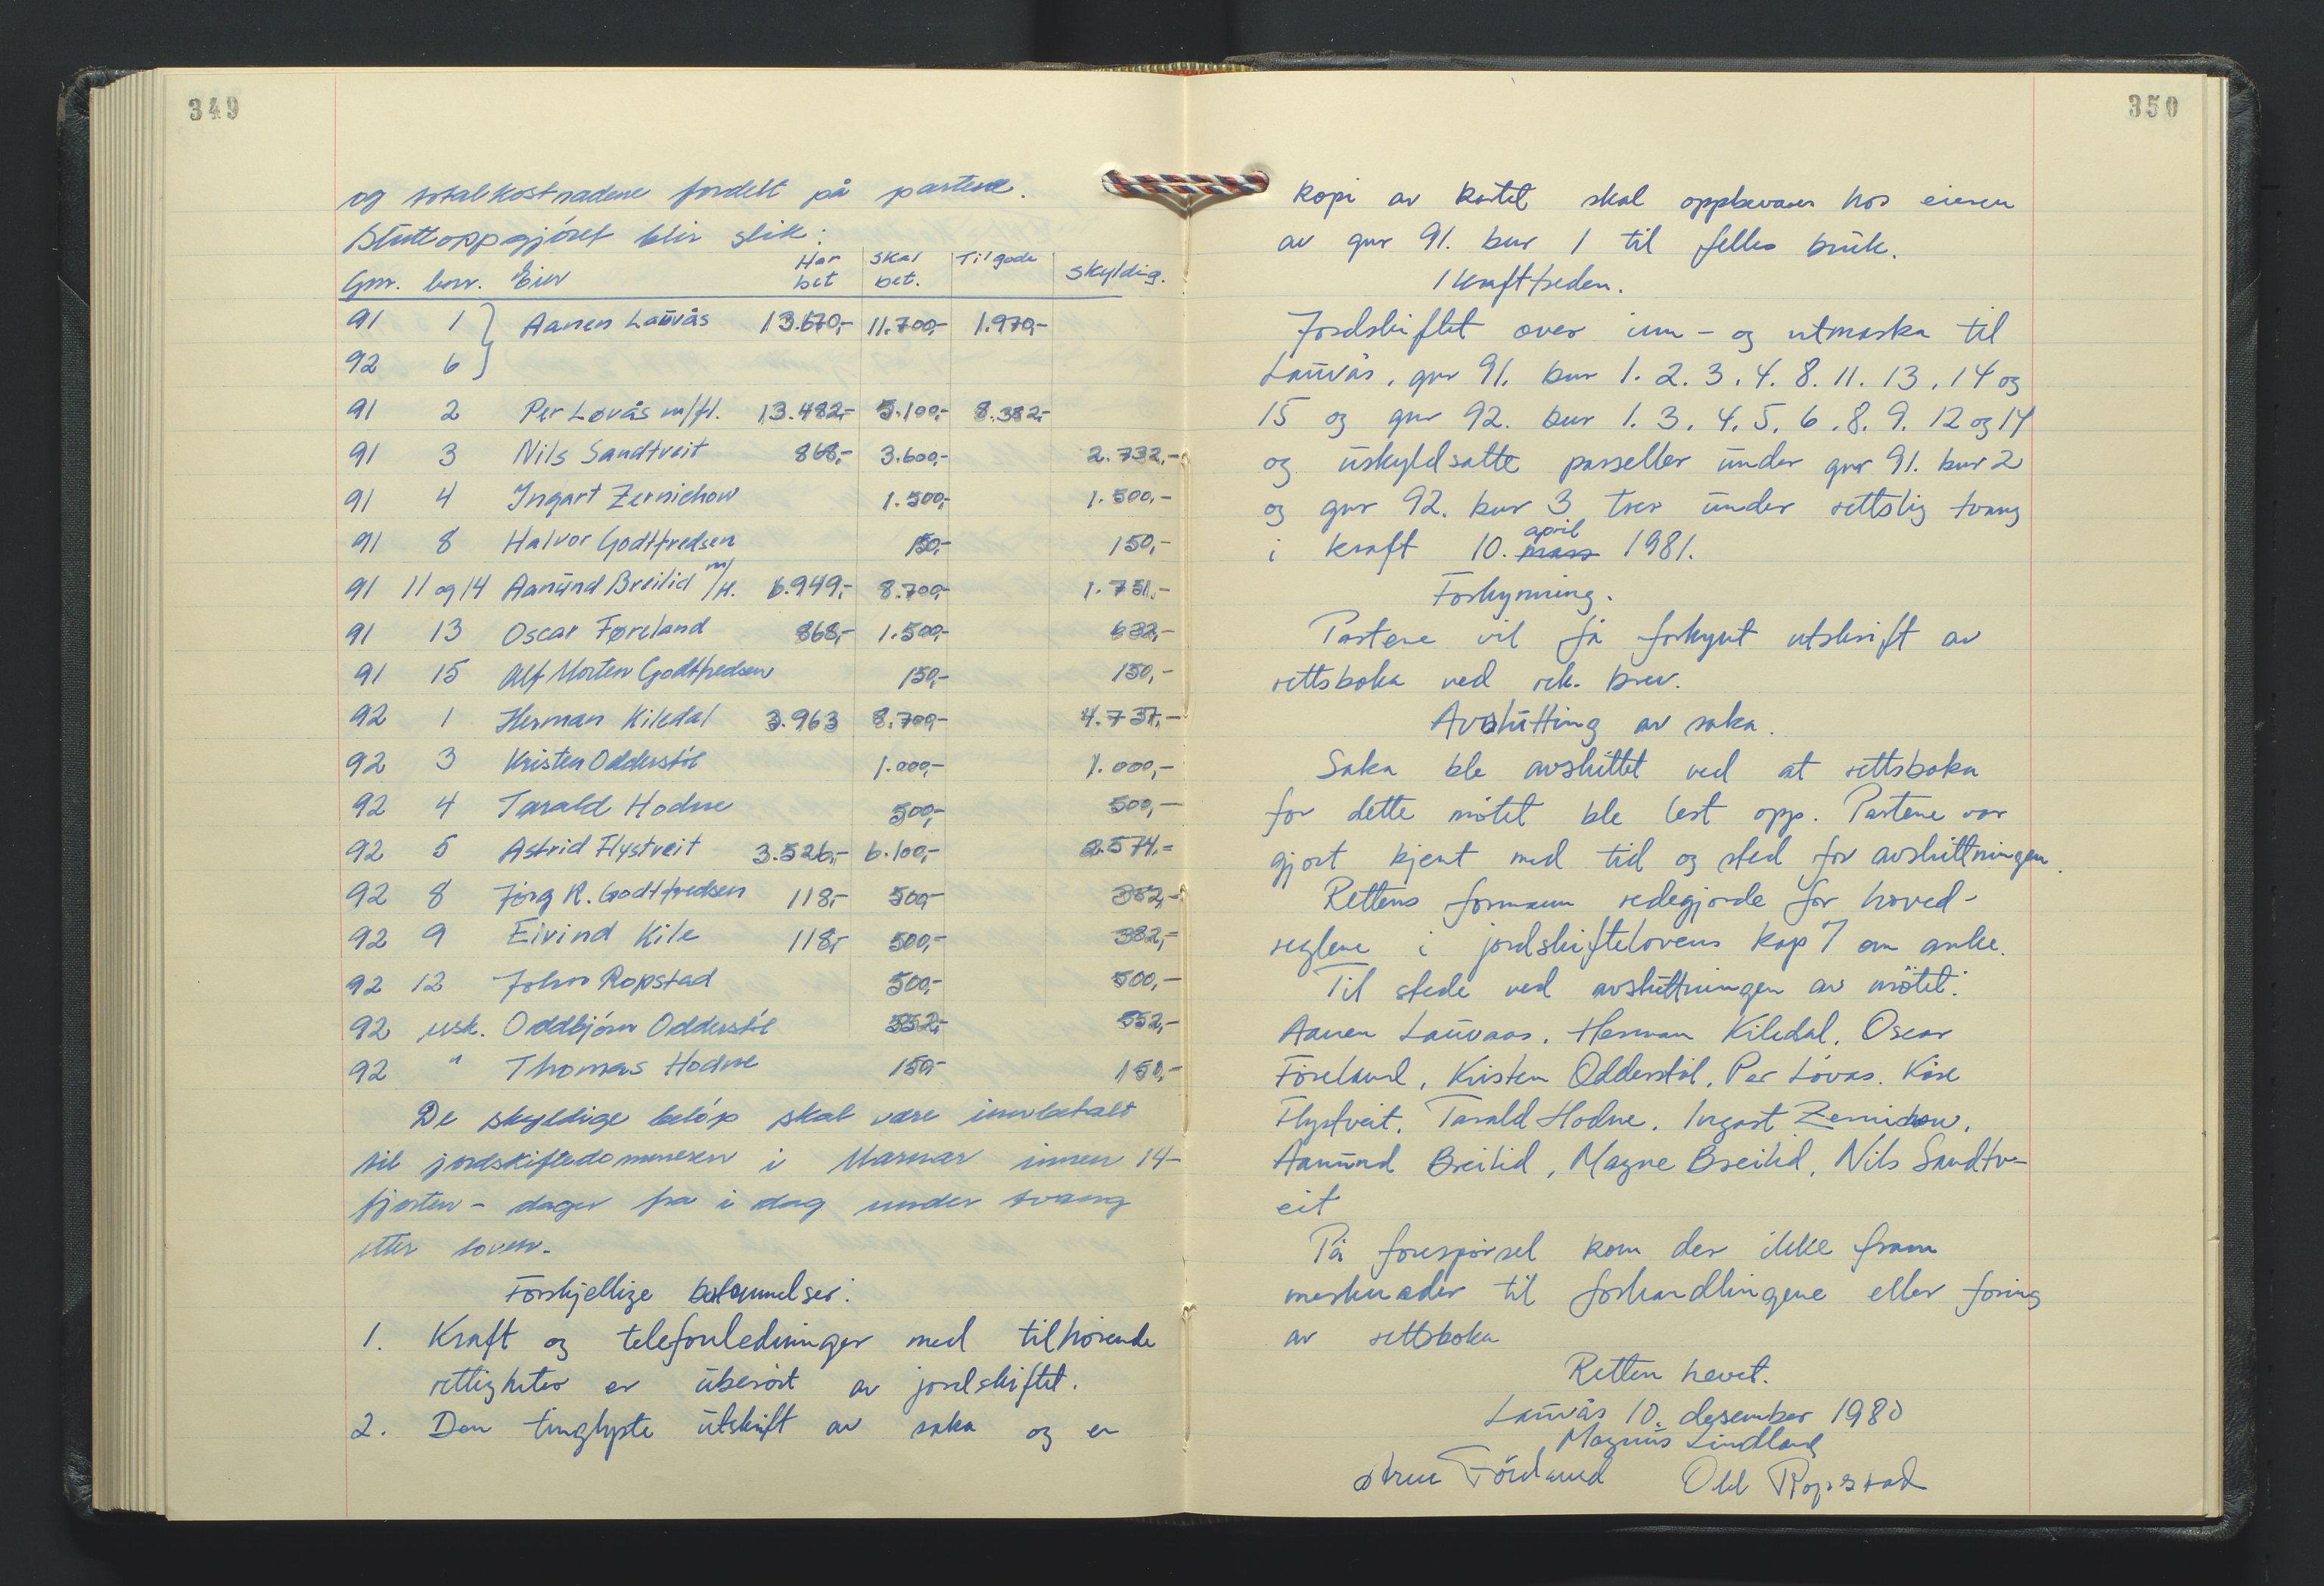 349
og totalkostnadene fordelt på partene.
Sluttoppgjöret blir slik:
Gnr. bnr. Eier Har bet skal bet. Tilgode skyldig.
91 1 } Aanen Lauvås 13.670,- 11.700,- 1.970,-
92 6 }
91 2 Per Løvås m/fl. 13.482,- 5.100,- 8.382,-
91 3 Nils Sandtveit 868,- 3.600,- 2.732,-
91 4 Ingart Zernichow 1.500,- 1.500,-
91 8 Halvor Godtfredsen 150,- 150,-
91 11 og 14 Aanund Breilid m/fl. 6.949,- 8.700,- 1.751,-
91 13 Oscar Føreland 868,- 1.500,- 632,-
91 15 Alf Morten Godtfredsen 150,- 150,-
92 1 Herman Kiledal 3.963 8.700,- 4.737,-
92 3 Kristen Odderstöl 1.000,- 1.000,-
92 4 Tarald Hodne 500,- 500,-
92 5 Astrid Flystveit 3.526,- 6.100,- 2.574,-
92 8 Jörg R. Godtfredsen 118,- 500,- 382,-
92 9 Eivind Kile 118,- 500,- 382,-
92 12 Johnn Ropstad 500,- 500,-
92 usk. Oddbjörn Odderstöl 552,- 552,-
92 " Thomas Hodne 150,- 150,-
De skyldige belöp skal være innbetalt
til jordskiftedommeren i Marnar innen 14-
fjorten - dager fra i dag under tvang
etter loven.
Forskjellige bestemmelser:
1. Kraft og telefonledninger med tilhörende
rettigheter er uberört av jordskiftet.
2. Den tinglyste utskrift av saka og en
350
kopi av kartet skal oppbevares hos eieren
av gnr 91. bnr 1 til felles bruk.
Ikrafttreden.
Jordskiftet over inn - og utmarka til
Lauvås, gnr 91. bnr 1. 2. 3. 4. 8. 11. 13. 14 og
15 og gnr 92. bnr 1. 3. 4. 5. 6. 8. 9. 12 og 14
og uskyldsatte parseller under gnr 91. bnr 2
og gnr 92. bnr 3 trer under rettslig tvang
april
i kraft 10. mars 1981.
Forkynning.
Partene vil få forkynt utskrift av
rettsboka ved rek. brev.
Avslutting av saka.
Saka ble avsluttet ved at rettsboka
for dette mötet ble lest opp. Partene var
gjort kjent med tid og sted for avslutningen.
Rettens formann redegjorde for hoved-
reglene i jordskiftelovens kap 7 om anke.
Til stede ved avslutningen av mötet:
Aanen Lauvaas. Herman Kiledal. Oscar
Föreland, Kristen Odderstöl, Per Lövas. Kåre
Flystveit. Tarald Hodne. Ingart Zernichow.
Aanund Breilid, Magne Breilid, Nils Sandtv-
eit
På forespörsel kom der ikke fram
merknader til forhandlingene eller föring
av rettsboka
Retten hevet.
Lauvås 10. desember 1980
Magnus Lindland
Föreland Odd Ropstad